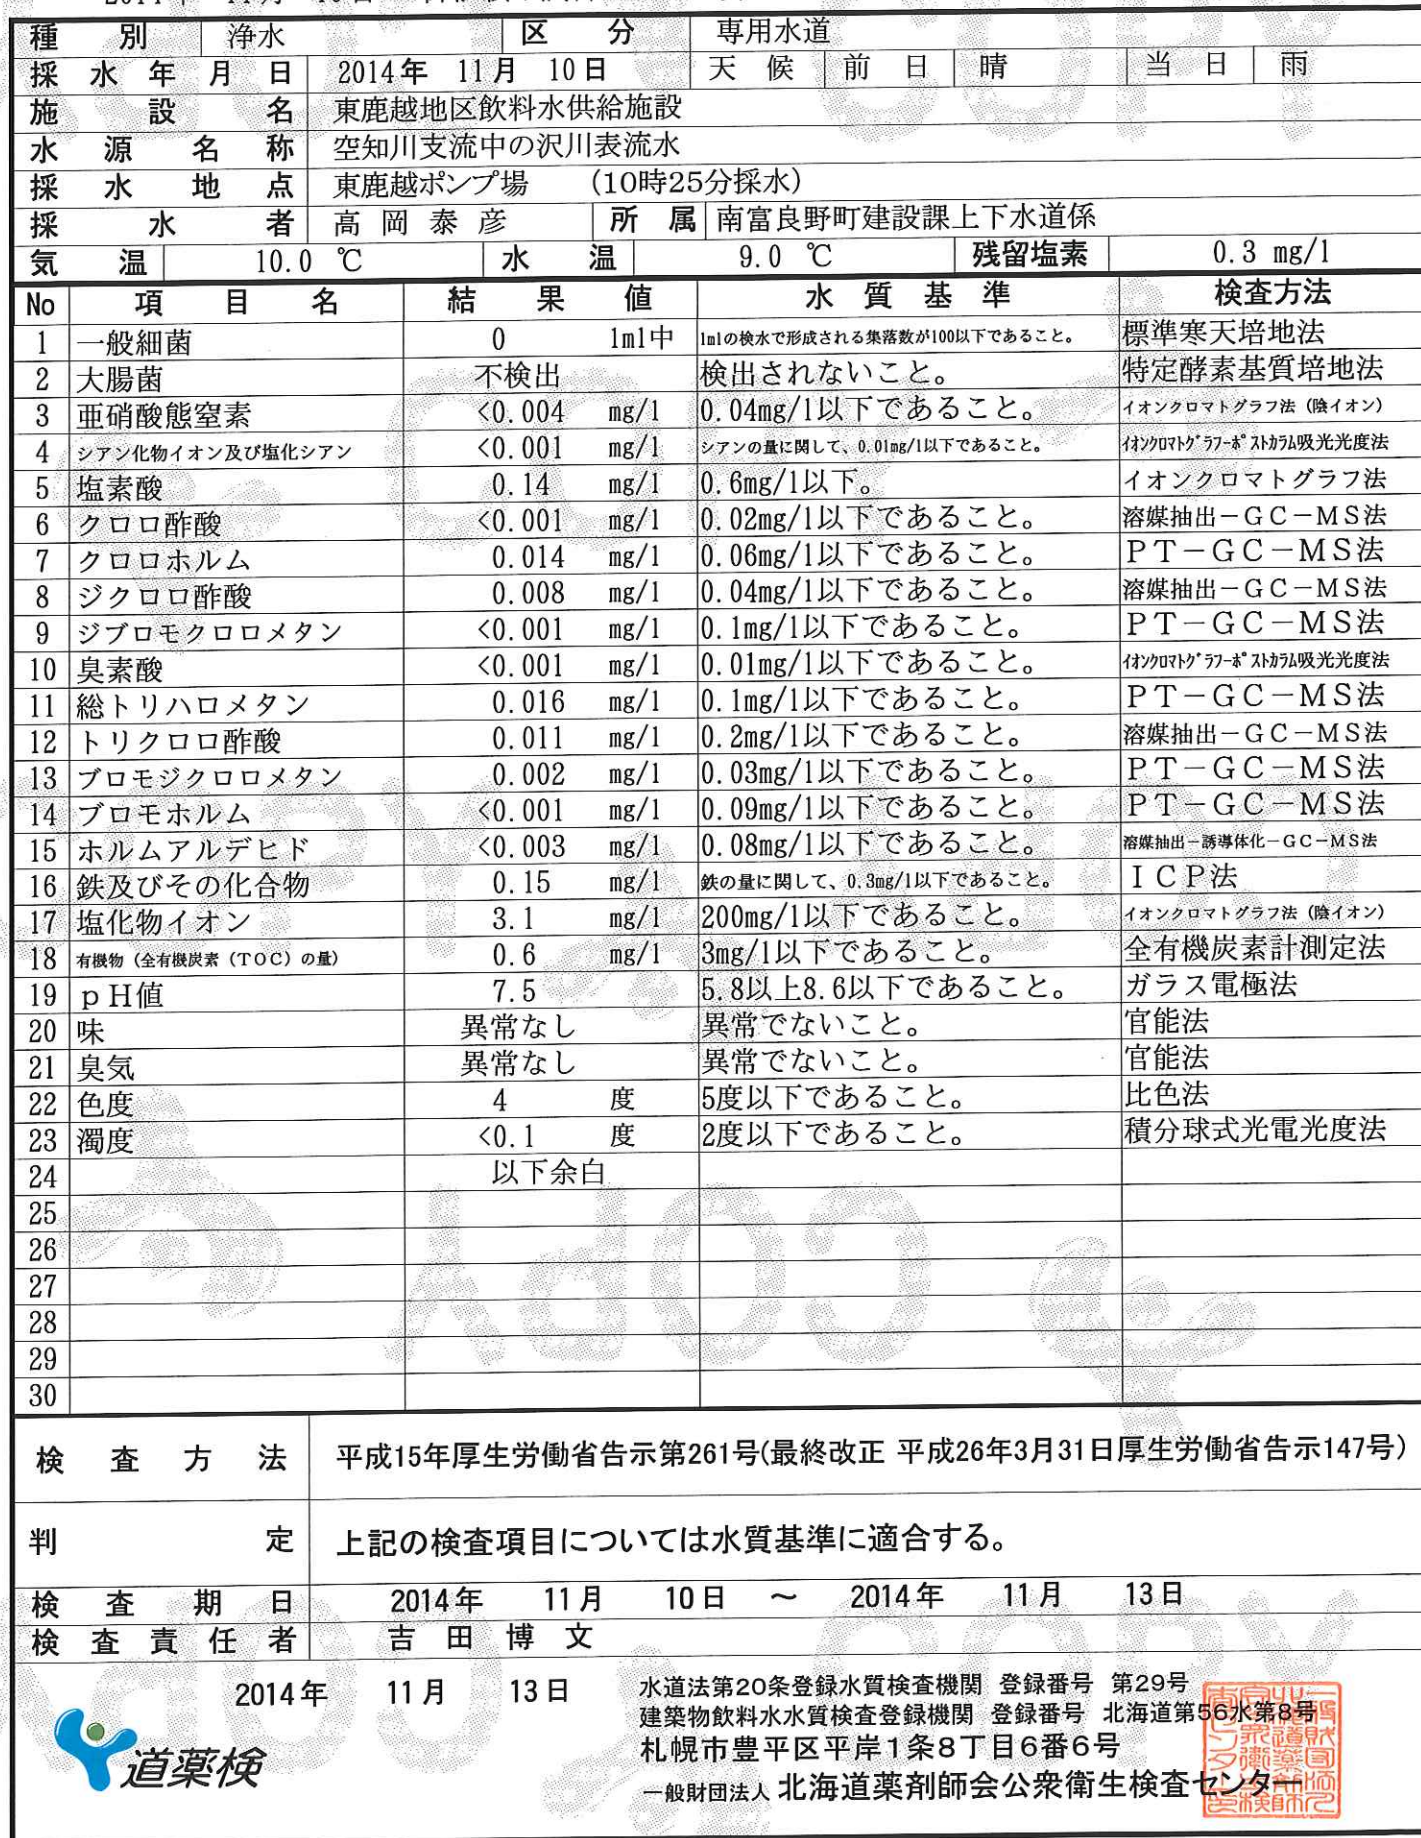 種別 浄水 区分 専用水道
採水年月日 2014年 11月 10日 天候 前日 晴 当日 雨
施設名 東鹿越地区飲料水供給施設
水源名称 空知川支流中の沢川表流水
採水地点 東鹿越ポンプ場 (10時25分採水)
採水者 高岡泰彦 所属 南富良野町建設課上下水道係
気温 10.0 ℃ 水温 9.0 ℃ 残留塩素 0.3 mg/l
No 項目名 結果値 水質基準 検査方法
1 一般細菌 0 1ml中 1mlの検水で形成される集落数が100以下であること。 標準寒天培地法
2 大腸菌 不検出 検出されないこと。 特定酵素基質培地法
3 亜硝酸態窒素 <0.004 mg/l 0.04mg/l以下であること。 イオンクロマトグラフ法（陰イオン）
4 シアン化物イオン及び塩化シアン <0.001 mg/l シアンの量に関して、0.01mg/l以下であること。 イオンクロマトグラフーポストカラム吸光光度法
5 塩素酸 0.14 mg/l 0.6mg/l以下。 イオンクロマトグラフ法
6 クロロ酢酸 <0.001 mg/l 0.02mg/l以下であること。 溶媒抽出－ＧＣ－ＭＳ法
7 クロロホルム 0.014 mg/l 0.06mg/l以下であること。 ＰＴ－ＧＣ－ＭＳ法
8 ジクロロ酢酸 0.008 mg/l 0.04mg/l以下であること。 溶媒抽出－ＧＣ－ＭＳ法
9 ジブロモクロロメタン <0.001 mg/l 0.1mg/l以下であること。 ＰＴ－ＧＣ－ＭＳ法
10 臭素酸 <0.001 mg/l 0.01mg/l以下であること。 イオンクロマトグラフーポストカラム吸光光度法
11 総トリハロメタン 0.016 mg/l 0.1mg/l以下であること。 ＰＴ－ＧＣ－ＭＳ法
12 トリクロロ酢酸 0.011 mg/l 0.2mg/l以下であること。 溶媒抽出－ＧＣ－ＭＳ法
13 ブロモジクロロメタン 0.002 mg/l 0.03mg/l以下であること。 ＰＴ－ＧＣ－ＭＳ法
14 ブロモホルム <0.001 mg/l 0.09mg/l以下であること。 ＰＴ－ＧＣ－ＭＳ法
15 ホルムアルデヒド <0.003 mg/l 0.08mg/l以下であること。 溶媒抽出－誘導体化－ＧＣ－ＭＳ法
16 鉄及びその化合物 0.15 mg/l 鉄の量に関して、0.3mg/l以下であること。 ＩＣＰ法
17 塩化物イオン 3.1 mg/l 200mg/l以下であること。 イオンクロマトグラフ法（陰イオン）
18 有機物（全有機炭素（ＴＯＣ）の量） 0.6 mg/l 3mg/l以下であること。 全有機炭素計測定法
19 ｐＨ値 7.5 5.8以上8.6以下であること。 ガラス電極法
20 味 異常なし 異常でないこと。 官能法
21 臭気 異常なし 異常でないこと。 官能法
22 色度 4 度 5度以下であること。 比色法
23 濁度 <0.1 度 2度以下であること。 積分球式光電光度法
24 以下余白
25
26
27
28
29
30
検査方法 平成15年厚生労働省告示第261号(最終改正 平成26年3月31日厚生労働省告示147号)
判定 上記の検査項目については水質基準に適合する。
検査期日 2014年 11月 10日 ～ 2014年 11月 13日
検査責任者 吉田博文
2014年 11月 13日
水道法第20条登録水質検査機関 登録番号 第29号
建築物飲料水水質検査登録機関 登録番号 北海道第56水第8号
札幌市豊平区平岸1条8丁目6番6号
道薬検
一般財団法人 北海道薬剤師会公衆衛生検査センター